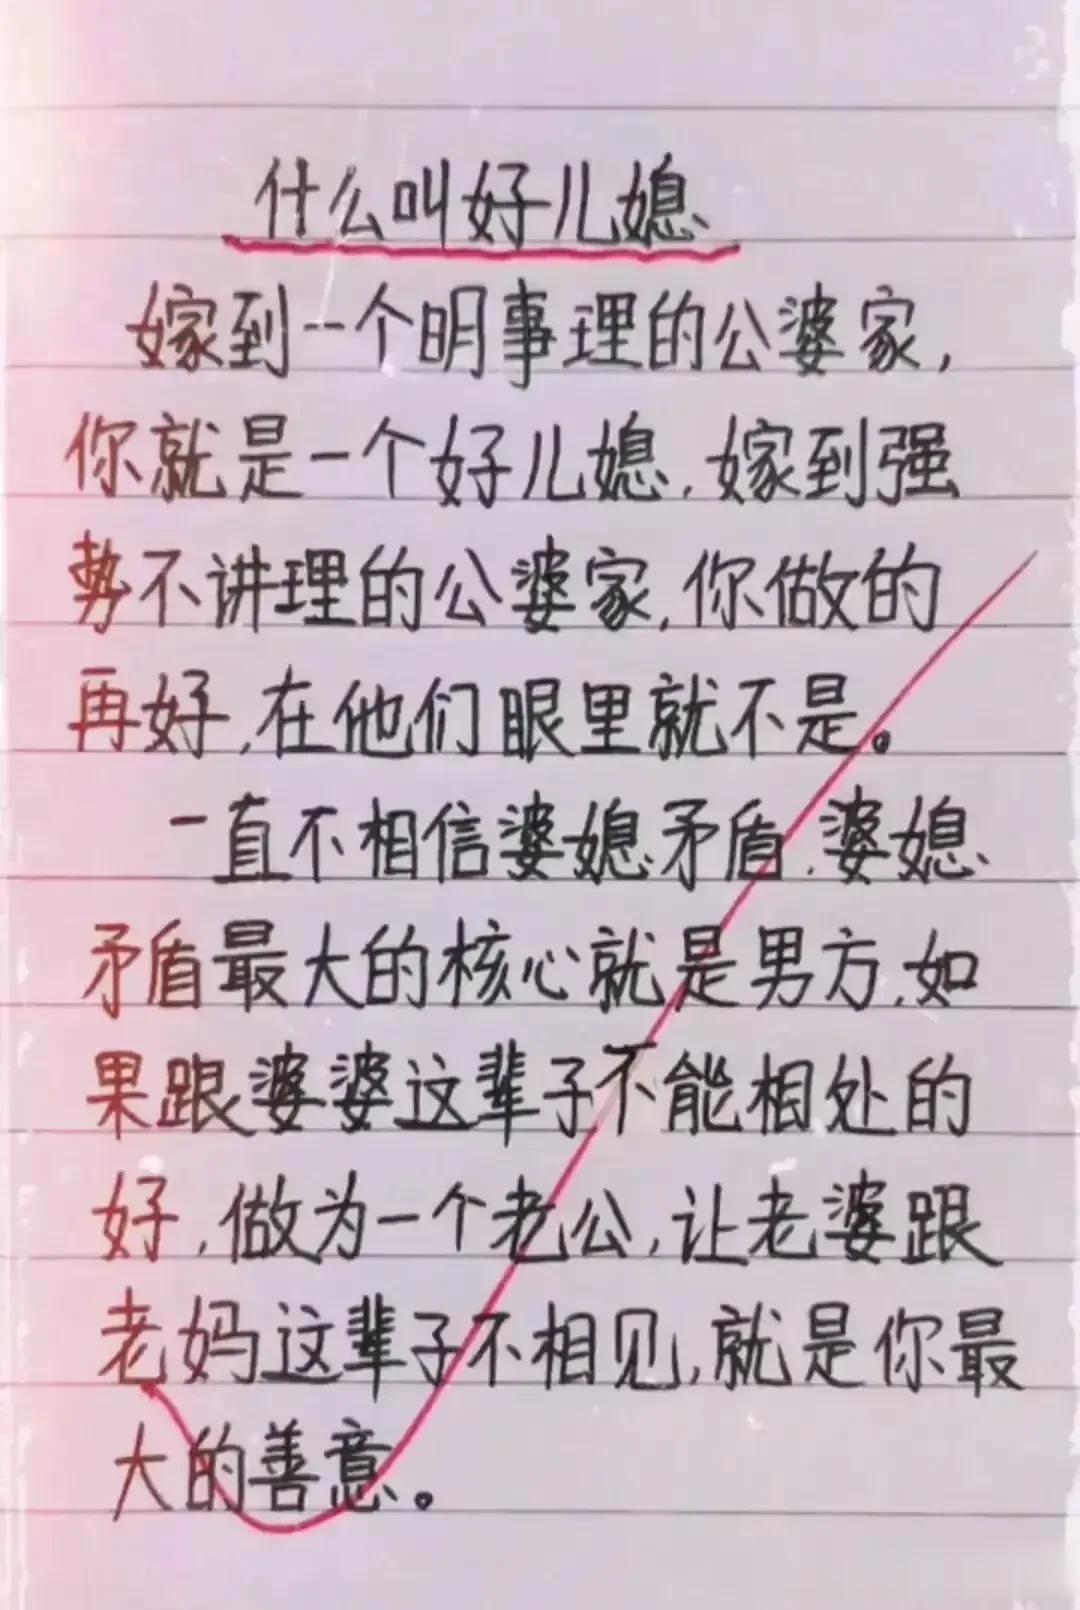 什么叫好儿媳
嫁到一个明事理的公婆家,
你就是一个好儿媳,嫁到强
势不讲理的公婆家,你做的
再好,在他们眼里就不是。
一直不相信婆媳矛盾,婆媳
矛盾最大的核心就是男方,如
果跟婆婆这辈子不能相处的
好,做为一个老公,让老婆跟
老妈这辈子不相见,就是你最
大的善意。